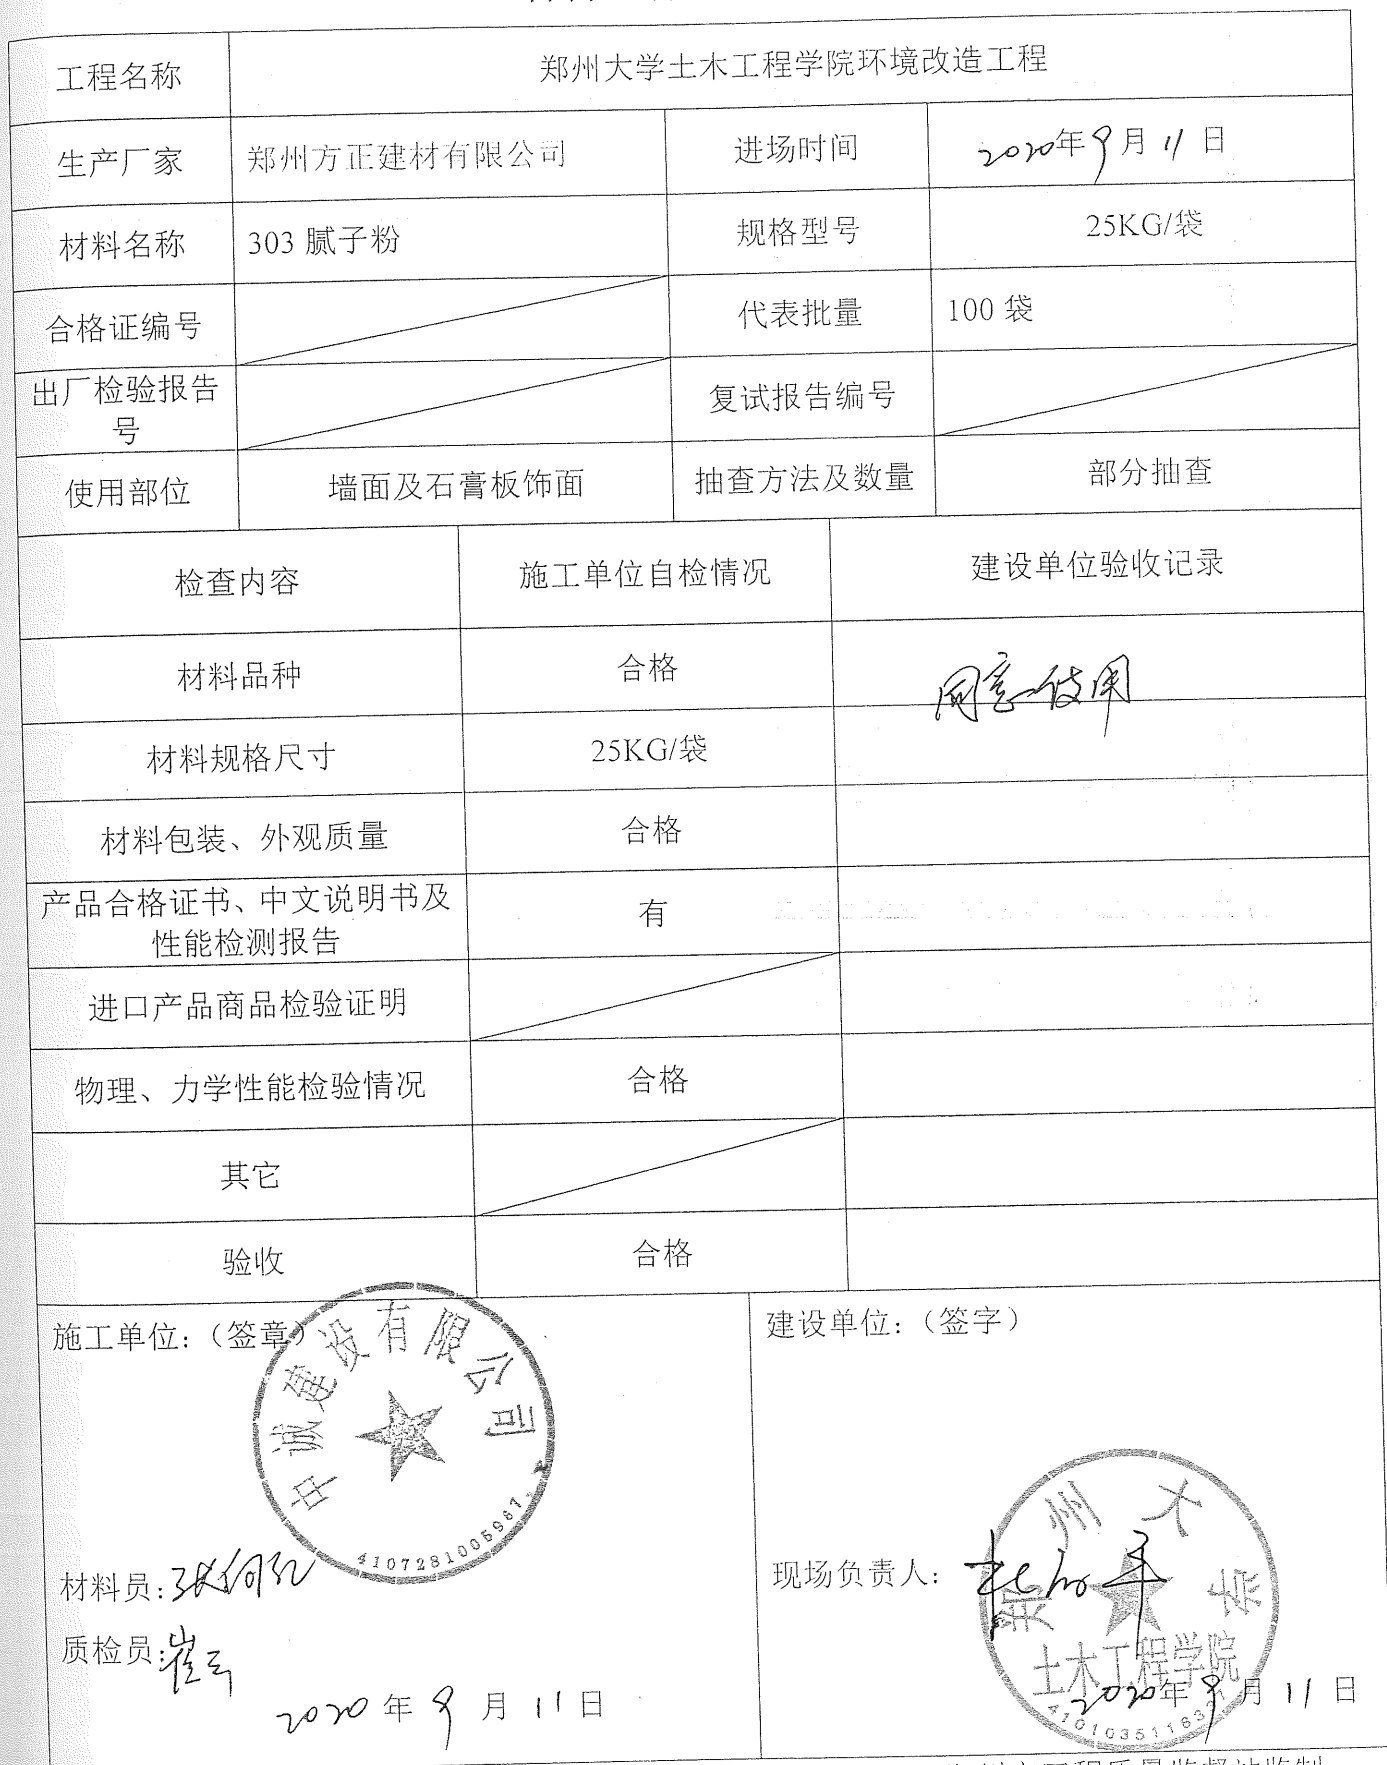 工程名称 郑州大学土木工程学院环境改造工程
生产厂家 郑州方正建材有限公司 进场时间 2020年9月11日
材料名称 303 腻子粉 规格型号 25KG/袋
合格证编号 代表批量 100 袋
出厂检验报告
号
复试报告编号
使用部位 墙面及石膏板饰面 抽查方法及数量 部分抽查
检查内容 施工单位自检情况 建设单位验收记录
材料品种 合格 同意使用
材料规格尺寸 25KG/袋
材料包装、外观质量 合格
产品合格证书、中文说明书及
性能检测报告
有
进口产品商品检验证明
物理、力学性能检验情况 合格
其它
验收 合格
施工单位:（签章）
中诚建设有限公司
4107281005981
材料员:
质检员:崔云
2020年9月11日
建设单位:（签字）
现场负责人:
郑州大学
土木工程学院
2020年9月11日